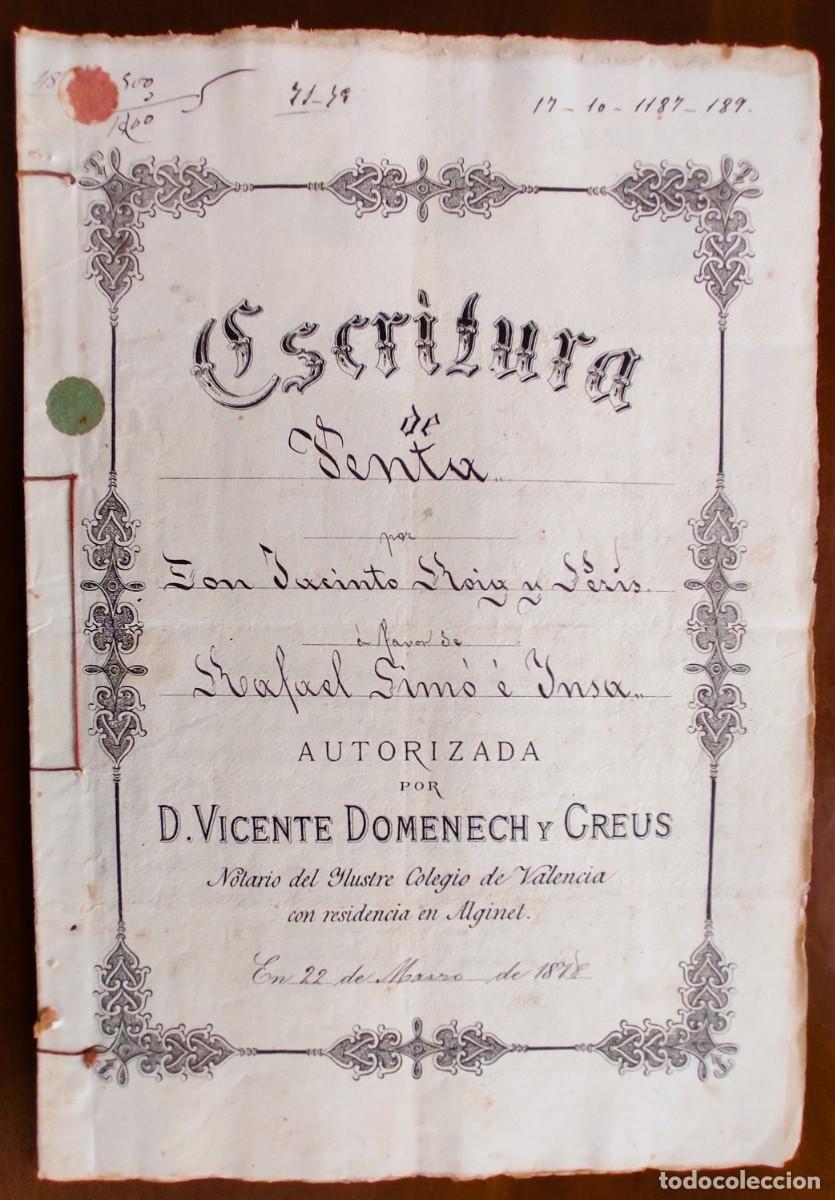 500
1500
71-79
17-10-1187-189.
Escritura
de
Venta
por
Don Jacinto Roig y Peris.
á favor de
Rafael Simó é Insa
AUTORIZADA
POR
D. VICENTE DOMENECH Y GREUS
Notario del Ylustre Colegio de Valencia
con residencia en Alginet.
En 22 de Marzo de 1878
todocoleccion